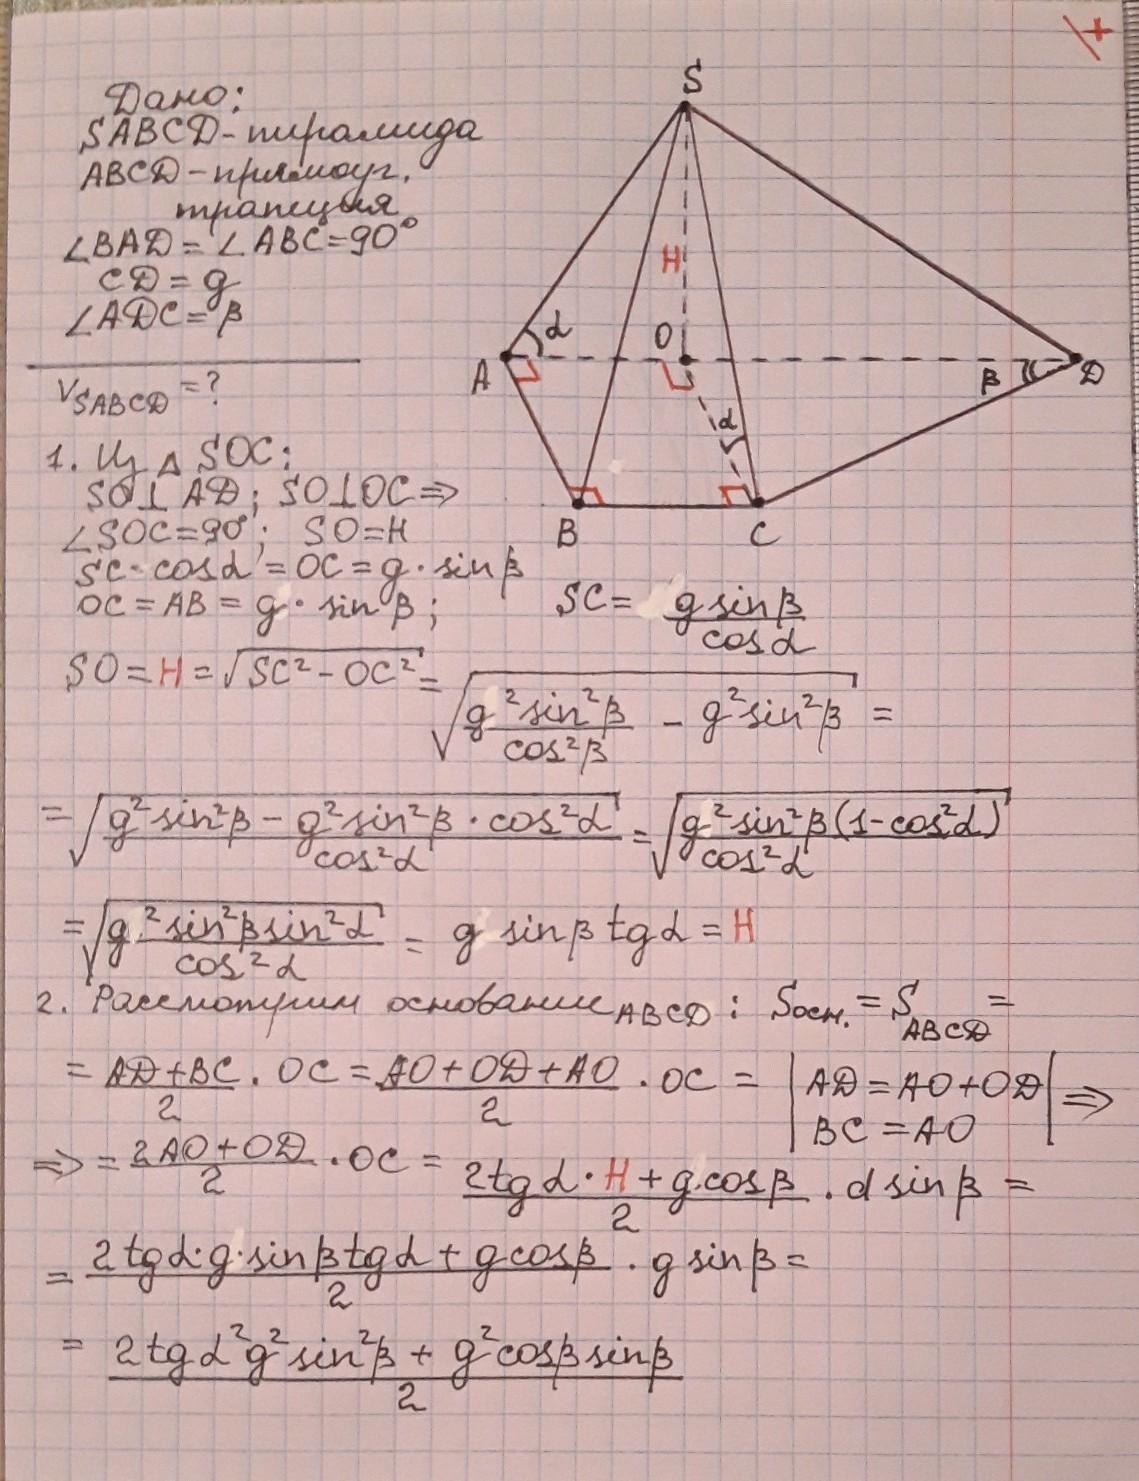 Дано:
SABCD - пирамида
ABCD - прямоуг.
трапеция
∠BAD = ∠ABC = 90°
CD = g
∠ADC = β
V_SABCD = ?
+
S
H
α
O
A
β
D
α
B
C
1. Из △ SOC:
SO ⊥ AD; SO ⊥ OC ⇒
∠SOC = 90°; SO = H
SC · cos α = OC = g · sin β
OC = AB = g · sin β; SC = g sin β / cos α
SO = H = √(SC² - OC²) = √(g² sin² β / cos² β - g² sin² β) =
= √((g² sin² β - g² sin² β · cos² α) / cos² α) = √(g² sin² β (1 - cos² α) / cos² α)
= √(g² sin² β sin² α / cos² α) = g sin β tg α = H
2. Рассмотрим основание ABCD: Sосн. = S_ABCD =
= (AD + BC) / 2 · OC = (AO + OD + AO) / 2 · OC = | AD = AO + OD
BC = AO | ⇒
⇒ = (2AO + OD) / 2 · OC = (2 tg α · H + g cos β) / 2 · d sin β =
= (2 tg α · g · sin β tg α + g cos β) / 2 · g sin β =
= (2 tg α² g² sin² β + g² cos β sin β) / 2